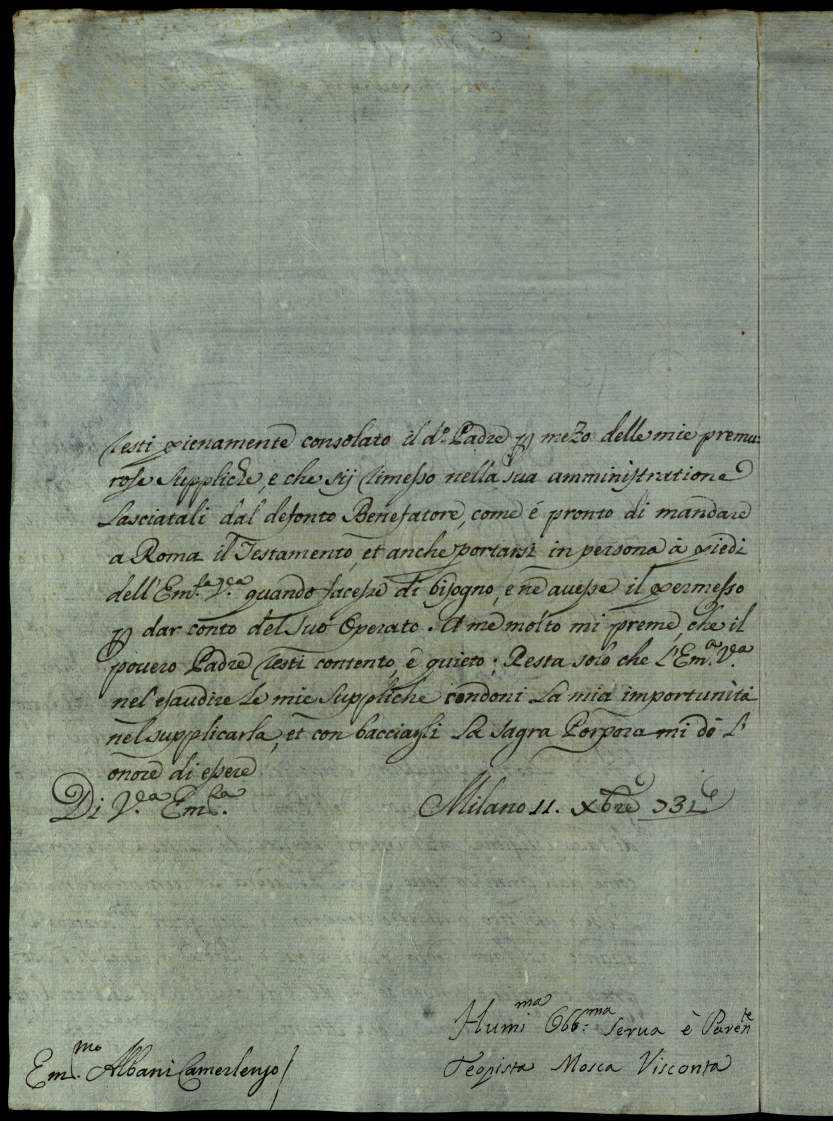 resti pienamente consolato il d.º Padre p mezo delle mie premu:
rose suppliche, e che sij rimesso nella sua amministratione
lasciatali dal defonto Benefatore, come é pronto di mandare
a Roma il Testamento, et anche portarsi in persona à piedi
dell'Em.ᶻᵃ V.ʳᵃ quando facesse di bisogno, e ne avesse il permesso
p dar conto del suo Operato. A me molto mi preme, che il
povero Padre resti contento, e quieto; Resta solo che l'Em.ᶻᵃ V.ʳᵃ
nel esaudire le mie suppliche condoni la mia importunità
nel supplicarla, et con bacciargli la sagra Porpora mi dò l'
onore di essere
Di V.ʳᵃ Em.ᶻᵃ Milano 11. Xbre 731
Humi.ᵐᵃ Obb.ᵐᵃ serua è Paren.ᵗᵉ
Em.ᵐᵒ Albani Camerlengo Teopista Mosca Visconta